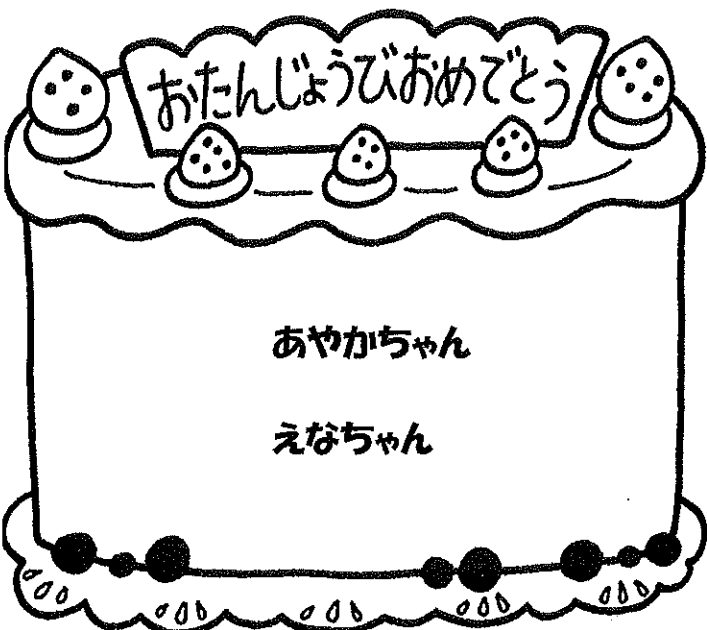 おたんじょうびおめでとう
あやかちゃん
えなちゃん